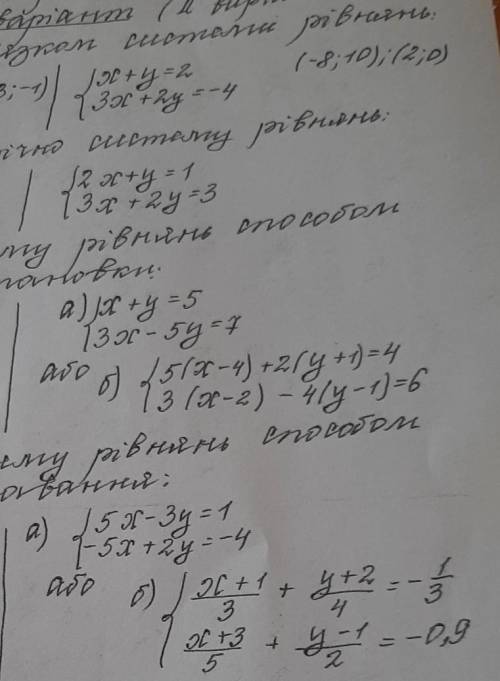 варіант (II варі
язком системи рівнянь:
3;-1) | { x+y=2 (-8;10); (2;0)
{ 3x+2y=-4
ічно систему рівнянь:
{ 2x+y=1
{ 3x+2y=3
ему рівнянь способом
тановки:
а) { x+y=5
{ 3x-5y=7
або б) { 5(x-4)+2(y+1)=4
{ 3(x-2)-4(y-1)=6
ему рівнянь способом
овання:
а) { 5x-3y=1
{ -5x+2y=-4
або б) { (x+1)/3 + (y+2)/4 = -1/3
{ (x+3)/5 + (y-1)/2 = -0,9